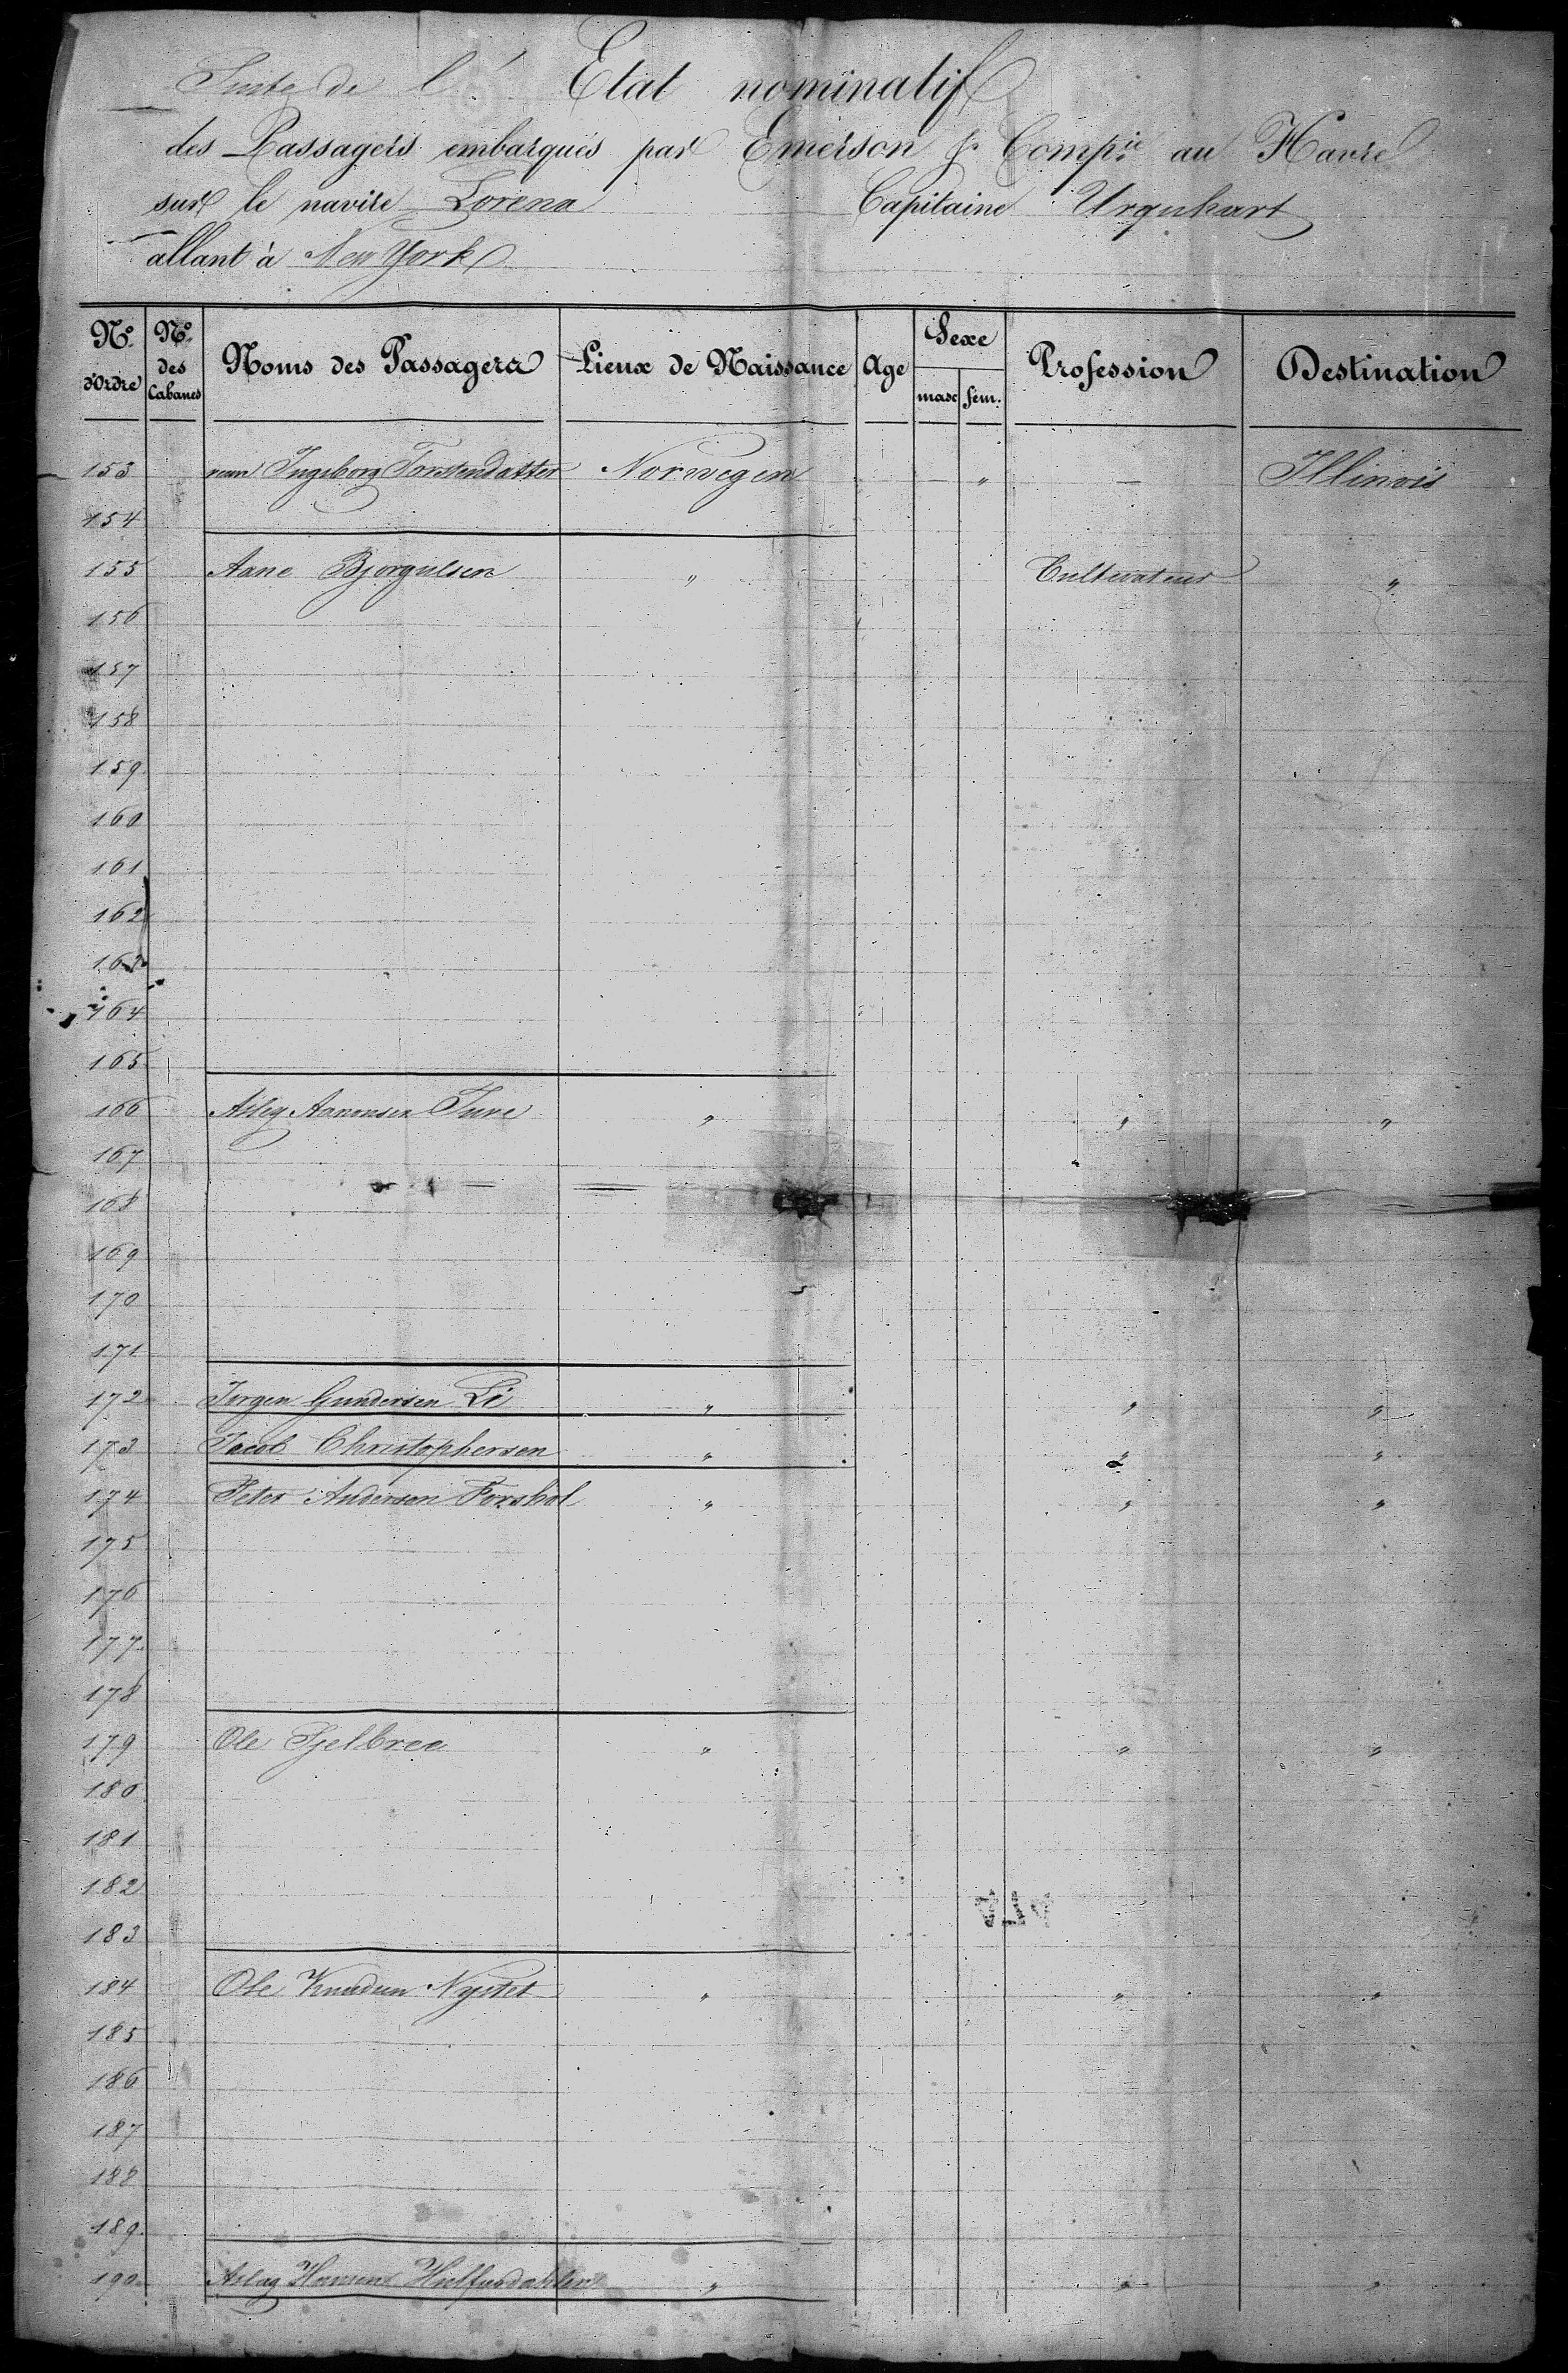 Suite de l' Etat nominatif
des Passagers embarqués par Emerson & Compie au Havre
sur le navire Lorena Capitaine Urquhart
allant à New York
No. d'Ordre No. des Cabanes Noms des Passagers Lieux de Naissance Age Sexe masc fém. Profession Destination
153 Ingeborg Torstendatter Norwegen — " — Illinois
154
155 Aane Bjorgulsen " Cultivateur "
156
157
158
159
160
161
162
163
164
165
166 Asleg Aanonsen Ture " " "
167
168
169
170
171
172 Jorgen Gundersen Li " " "
173 Jacob Christophersen " " "
174 Peter Andersen Forshol " " "
175
176
177
178
179 Ole " " "
180
181
182
183
184 Ole Knudsen Nystet " " "
185
186
187
188
189
190 Aslag Hansen " " "